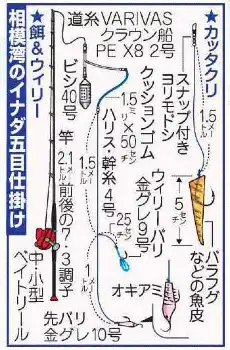 相模湾のイナダ五目仕掛け
★餌&ウィリー
★カッタクリ
道糸VARIVAS
クラウン船
PE X8 2号
ビシ40号
クッションゴム
1.5ミリ×50センチ
スナップ付き
ヨリモドシ
1.5メートル
竿
2.1メートル前後の7:3調子
ハリス・幹糸4号
1.5メートル
ウィリーバリ
金グレ9号
25センチ
5センチ
1メートル
オキアミ
バラフグ
などの魚皮
中・小型
ベイトリール
先バリ
金グレ10号